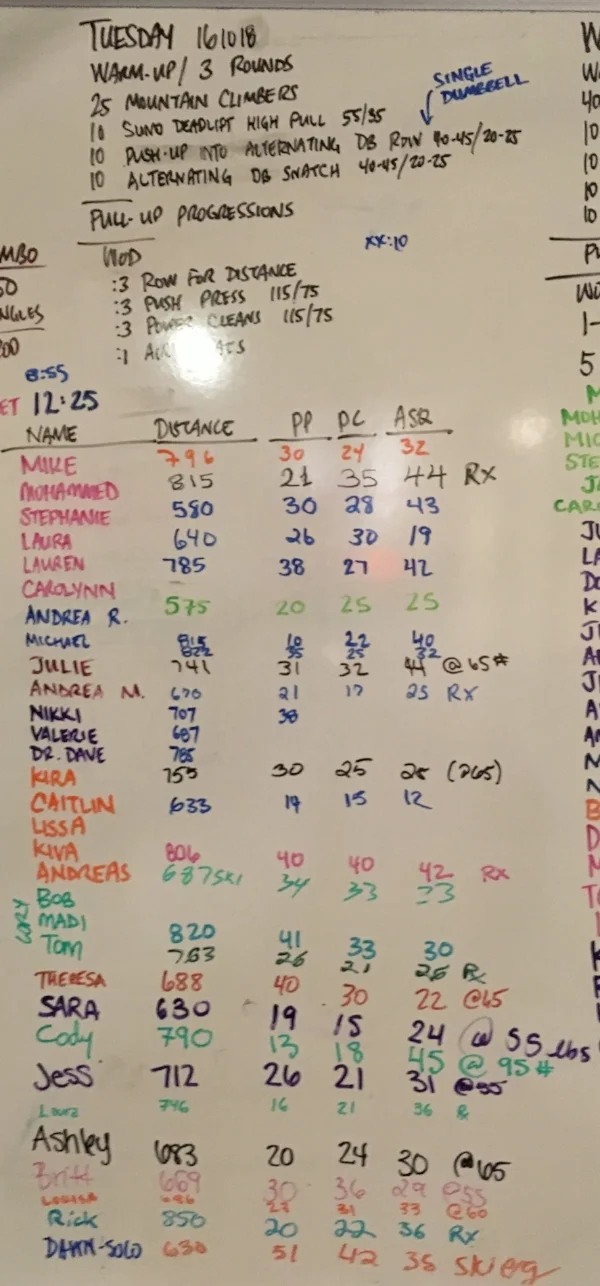 TUESDAY 161018
WARM-UP/ 3 ROUNDS
25 MOUNTAIN CLIMBERS
SINGLE
DUMBBELL
10 SUMO DEADLIFT HIGH PULL 55/35
10 PUSH-UP INTO ALTERNATING DB ROW 40-45/20-25
10 ALTERNATING DB SNATCH 40-45/20-25
PULL-UP PROGRESSIONS
XX:10
WOD
:3 ROW FOR DISTANCE
:3 PUSH PRESS 115/75
:3 POWER CLEANS 115/75
:1
8:55
12:25
NAME DISTANCE PP PC ASQ
MIKE 796 30 24 32
MOHAMMED 815 21 35 44 RX
STEPHANIE 580 30 28 43
LAURA 640 26 30 19
LAUREN 785 38 27 42
CAROLYNN
ANDREA R. 575 20 25 25
MICHAEL 815 22 40
822 35 25 32
JULIE 741 31 32 44 @ 65#
ANDREA M. 670 21 17 25 RX
NIKKI 707 38
VALERIE 687
DR. DAVE 785
KIRA 755 30 25 (265)
CAITLIN 633 19 15 12
LISSA
KIVA 806 40 40 42 RX
ANDREAS 687 SKI 34 33 33
BOB
MADI
Tom 820 41 33 30
763 26 21 26 Rx
THERESA 688 40 30 22 @65
SARA 630 19 15 24 @ 55 lbs
Cody 790 13 18 45 @ 95#
Jess 712 26 21 31 @55
Laura 746 16 21 36 Rx
Ashley 683 20 24 30 @65
Britt 669 30 36 29 @55
LOUISA 686 23 31 33 @60
Rick 850 20 22 36 RX
DAWN-SOLO 630 51 42 38 Ski erg